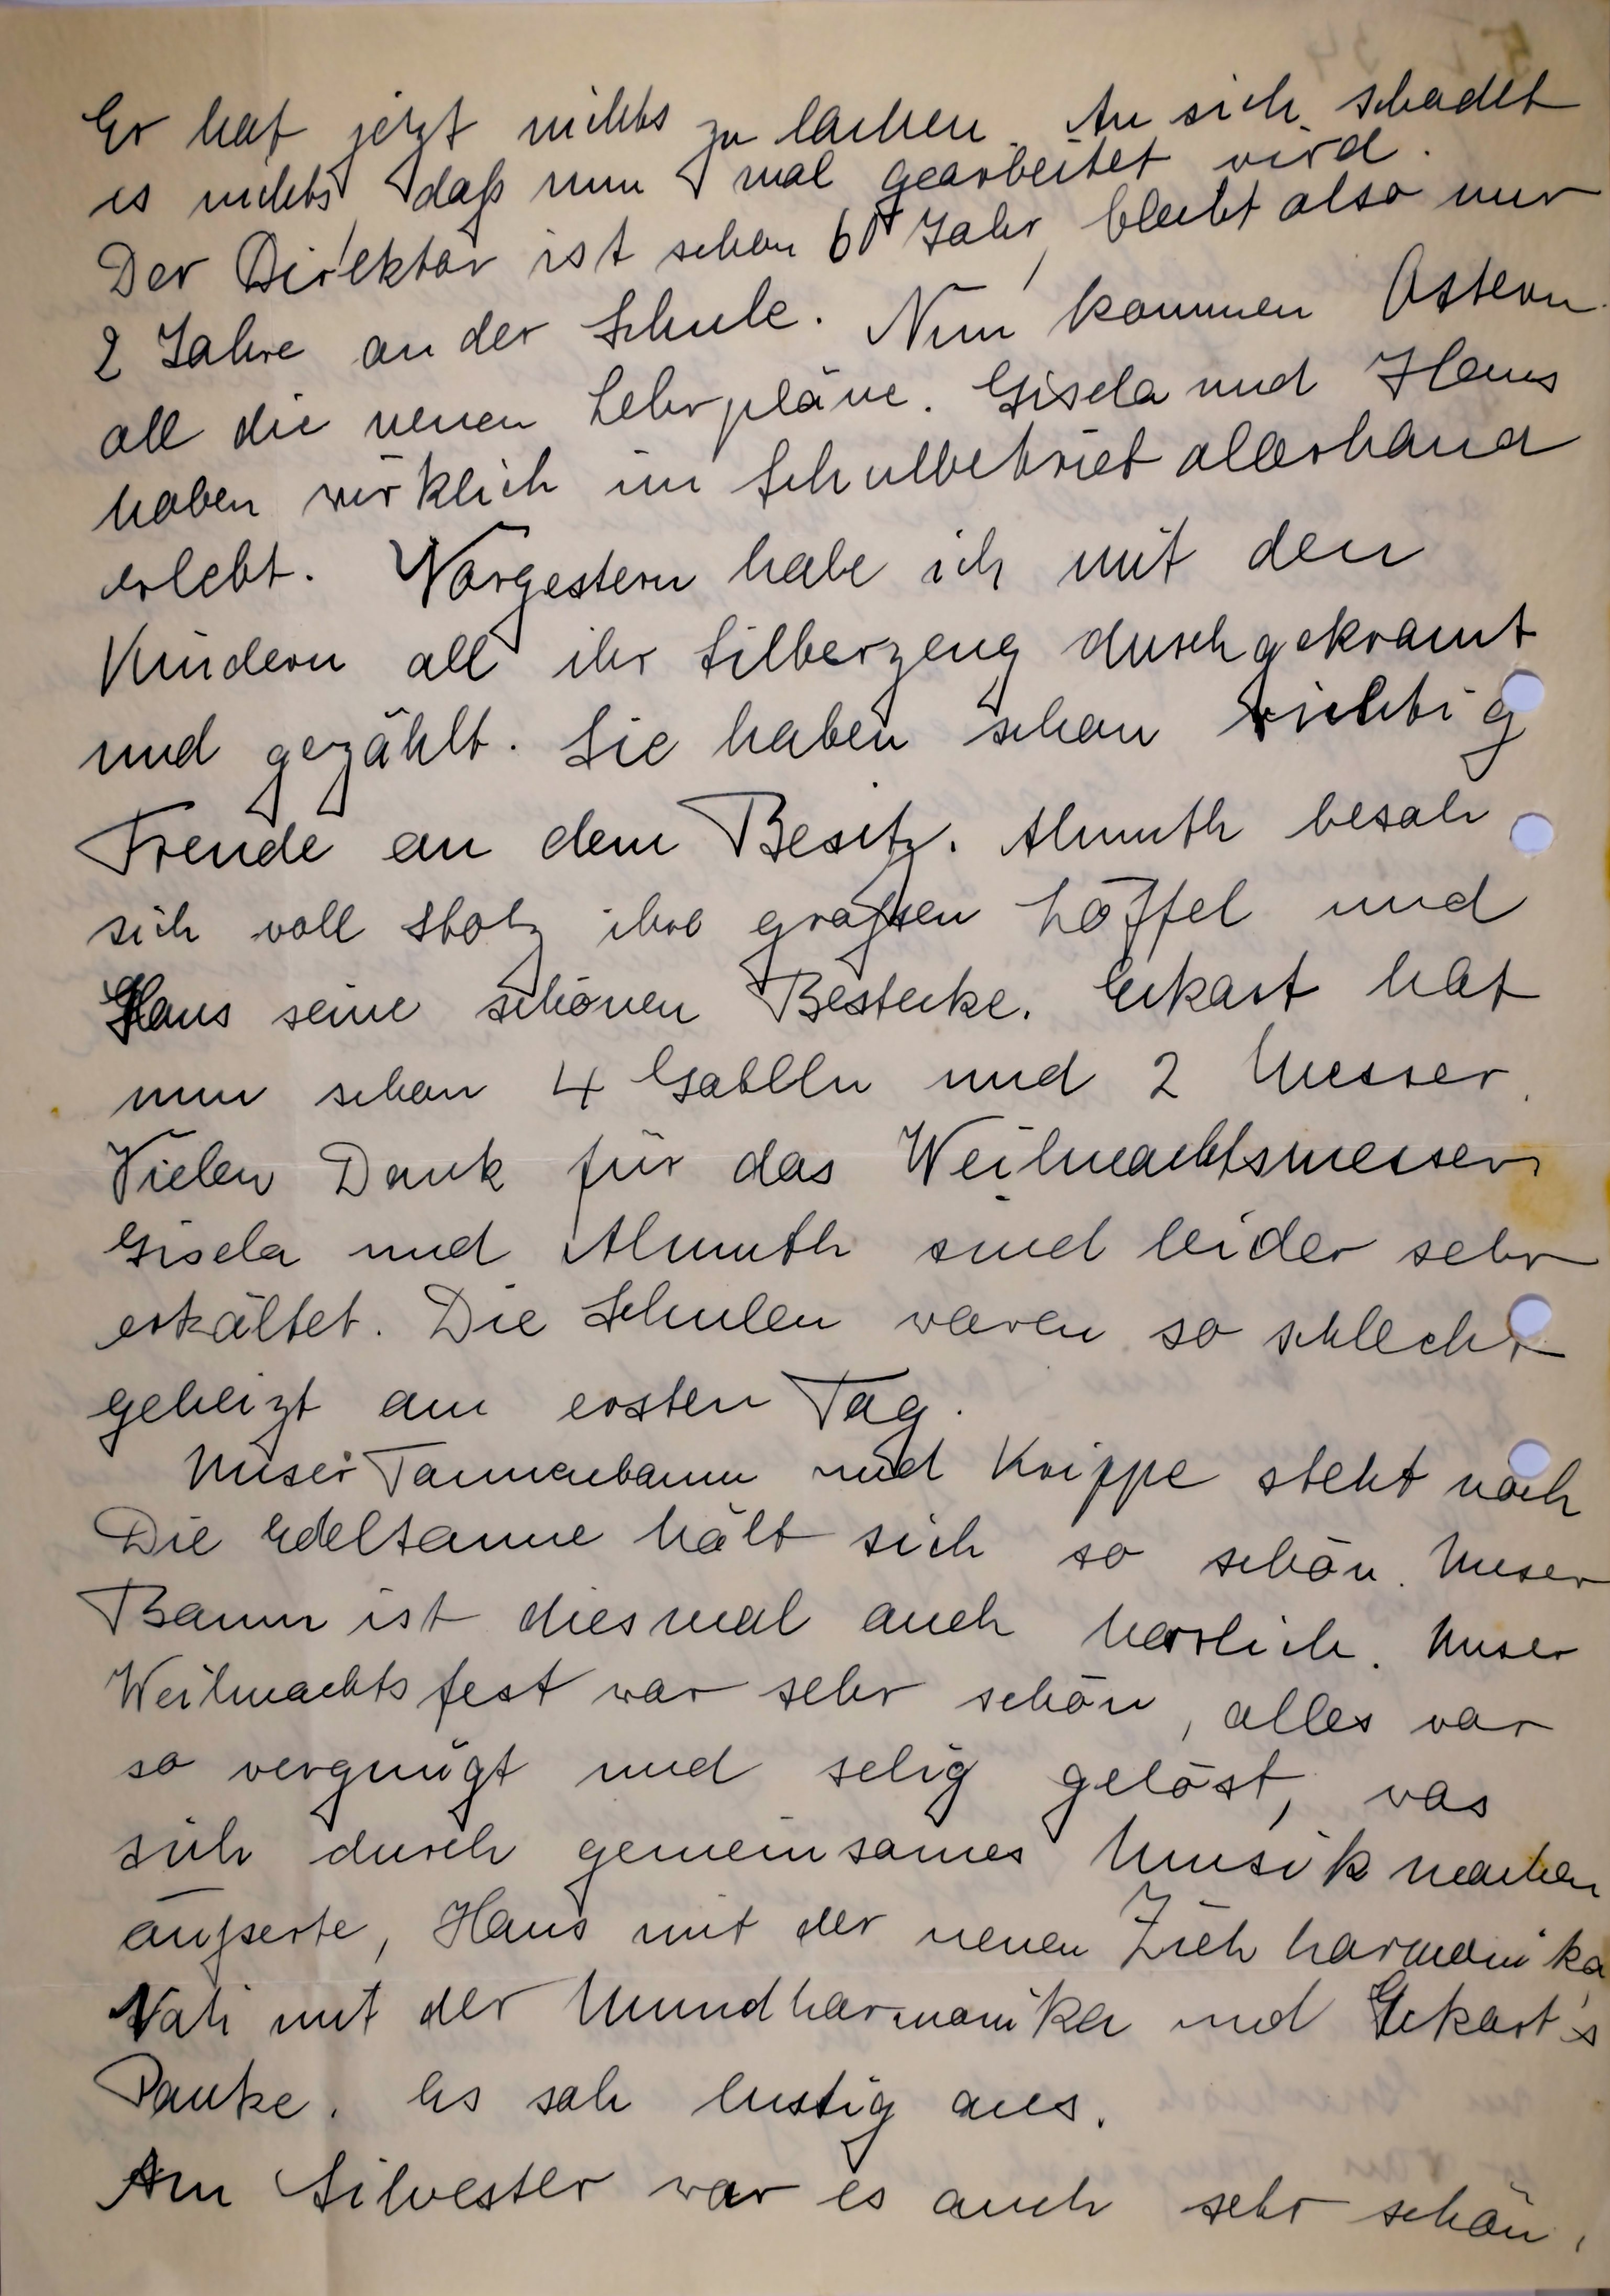 Er hat jetzt nichts zu lachen. An sich schadet
es nichts, daß nun mal gearbeitet wird.
Der Direktor ist schon 60 Jahr, bleibt also nur
2 Jahre an der Schule. Nun kommen Ostern
all die neuen Lehrpläne. Gisela und Hans
haben wirklich im Schulbetrieb allerhand
erlebt. Vorgestern habe ich mit den
Kindern all ihr Silberzeug durchgekramt
und gezählt. Sie haben schon richtig
Freude an dem Besitz. Almuth besah
sich voll Stolz ihre großen Löffel und
Hans seine schönen Bestecke. Eckart hat
nun schon 4 Gabeln und 2 Messer.
Vielen Dank für das Weihnachtsmesser.
Gisela und Almuth sind leider sehr
erkältet. Die Schulen waren so schlecht
geheizt am ersten Tag.
Unser Tannenbaum und Krippe steht noch
Die Edeltanne hält sich so schön. Unser
Baum ist diesmal auch herrlich. Unser
Weihnachtsfest war sehr schön, alles war
so vergnügt und selig gelöst, was
sich durch gemeinsames Musik machen
äußerte, Hans mit der neuen Ziehharmonika,
Vati mit der Mundharmonika und Eckart's
Pauke. Es sah lustig aus.
Am Silvester war es auch sehr schön,